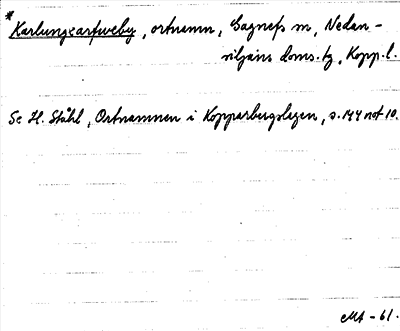 *Karlungearfweby, ortnamn, Gagnefs sn, Nedan-
siljans doms.tg, Kopp.l.
Se H. Ståhl, Ortnamnen i Kopparbergslagen, s. 144 not 10.
MA -61.